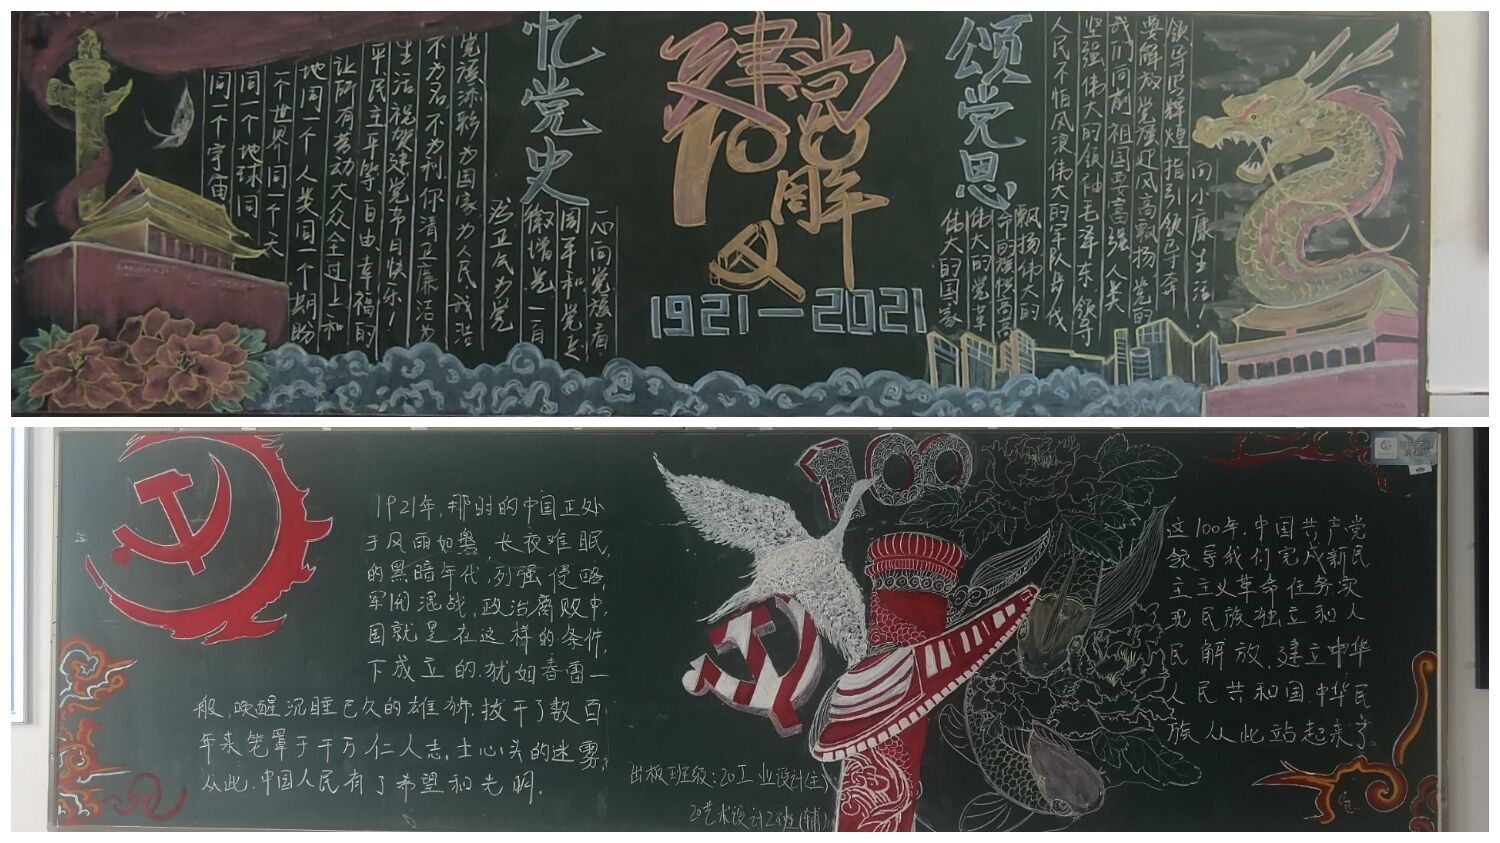 忆党史
建党
100
周年
1921—2021
颂党恩
一心向党援肩
周年和党走
微惜党一自
为卫民为党
党添添彩为国家为人民我活
不为名不为利你清卫廉洁为
生活祝贺建党节日快乐！
平民主平等、自由幸福的
让所有劳动大众全过上和
地同一个人类同一个期盼
一个世界同一个天
同一个地球同
同一个宇宙
领导写辉煌指引领导奔
向小康生活！
要解放党旗迎风高飘扬党的
我们向前祖国要富强人类
坚强伟大的领袖毛泽东领导
人民不怕风浪伟大的军队步伐
飘扬伟大的
命的旗帜高高
伟大的党革
伟大的国家
100
1921年，那时的中国正处
于风雨如磐、长夜难眠
的黑暗年代，列强侵略，
军阀混战，政治腐败中，
国就是在这样的条件，
下成立的。犹如春雷一
般，唤醒沉睡已久的雄狮。拨开了数百
年来笼罩于千万仁人志，士心头的迷雾，
从此，中国人民有了希望和光明。
出板班级：20工业设计(主)
20艺术设计2班(辅)
这100年，中国共产党
领导我们完成新民
主主义革命任务，实
现民族独立和人
民解放，建立中华
人民共和国，中华民
族从此站起来了。